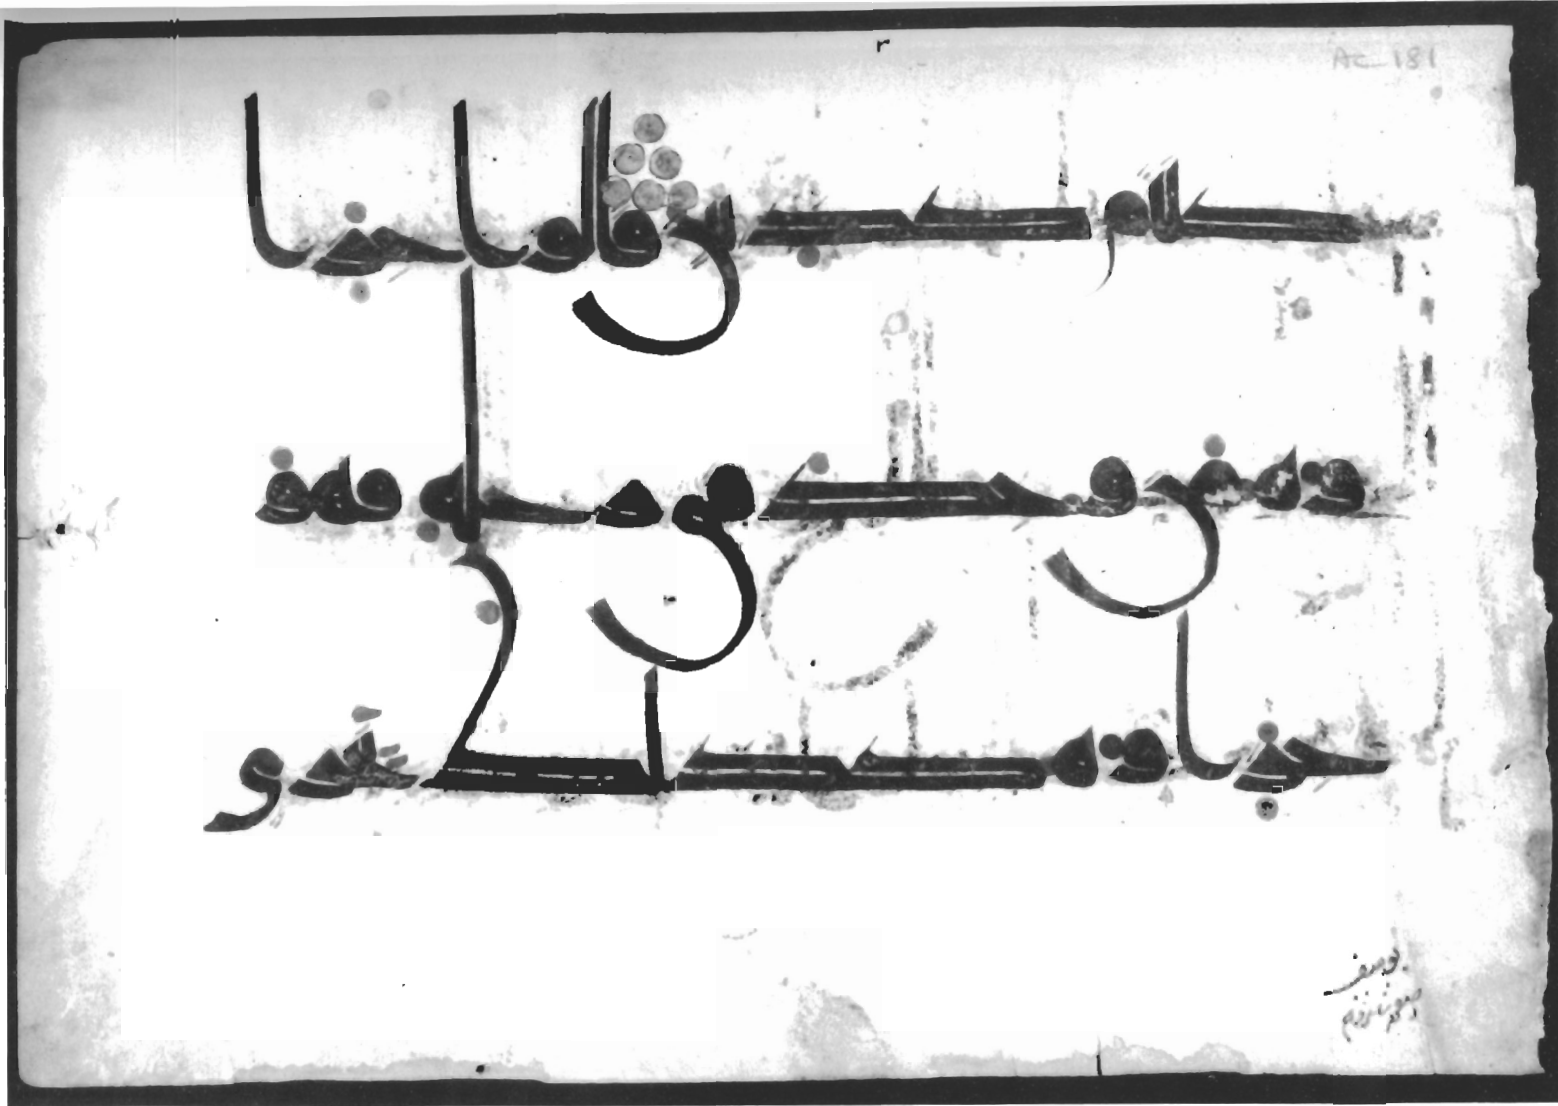 r
AC 181
كنتم كدبين قالوا جزا
وه من وجد فى رحله فهو
جزاوه كدلك نجزى